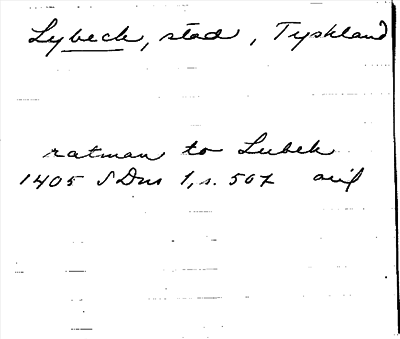 Lybeck, stad, Tyskland
ratman to Lubek
1405 SDns 1, s. 507 avif